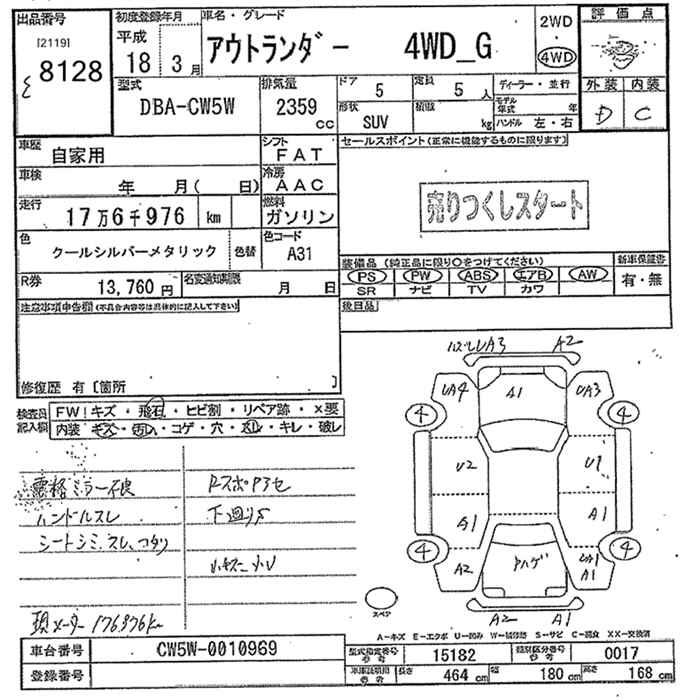 出品番号
[2119]
8128
初度登録年月
平成
18 3月
車名・グレード
アウトランダー 4WD_G
2WD
4WD
評価点
外装 内装
D C
型式
DBA-CW5W
排気量
2359
cc
ドア
5
定員
5人
形状
SUV
積載
kg
ディーラー・並行
モデル年式
年
ハンドル 左・右
車歴
自家用
シフト
FAT
車検
年 月( 日)
冷房
AAC
走行
17万6千976
km
燃料
ガソリン
色
クールシルバーメタリック
色替
色コード
A31
R券
13,760円
名変通知期限
月 日
セールスポイント(正常に機能するものに限ります)
売りつくしスタート
装備品(純正品に限り○をつけてください)
新車保証書
PS PW ABS エアB AW
有・無
SR ナビ TV カワ
後日品
注意事項申告欄(不具合内容等は具体的に記入して下さい)
修復歴 有〔箇所 〕
検査員記入欄
FW!キズ・飛石・ヒビ割・リペア跡・×要
内装・キズ・汚れ・コゲ・穴・スレ・キレ・破レ
ミラー不良
ハンドルスレ
シートシミ、スレ
下廻りサ
現メーター176976km
UA3 A2
UA4 A1 UA3
4 4
U2 U1
A1 A1
4 4
A2 Aハゲ UA1 A1
スペア
A2 A1
A-キズ E-エクボ U-凹み W-補修跡 S-サビ C-腐食 XX-交換済
車台番号
CW5W-0010969
登録番号
型式指定番号
参考
15182
類別区分番号
参考
0017
車車証説明
参考
長さ
464 cm
幅
180 cm
高さ
168 cm